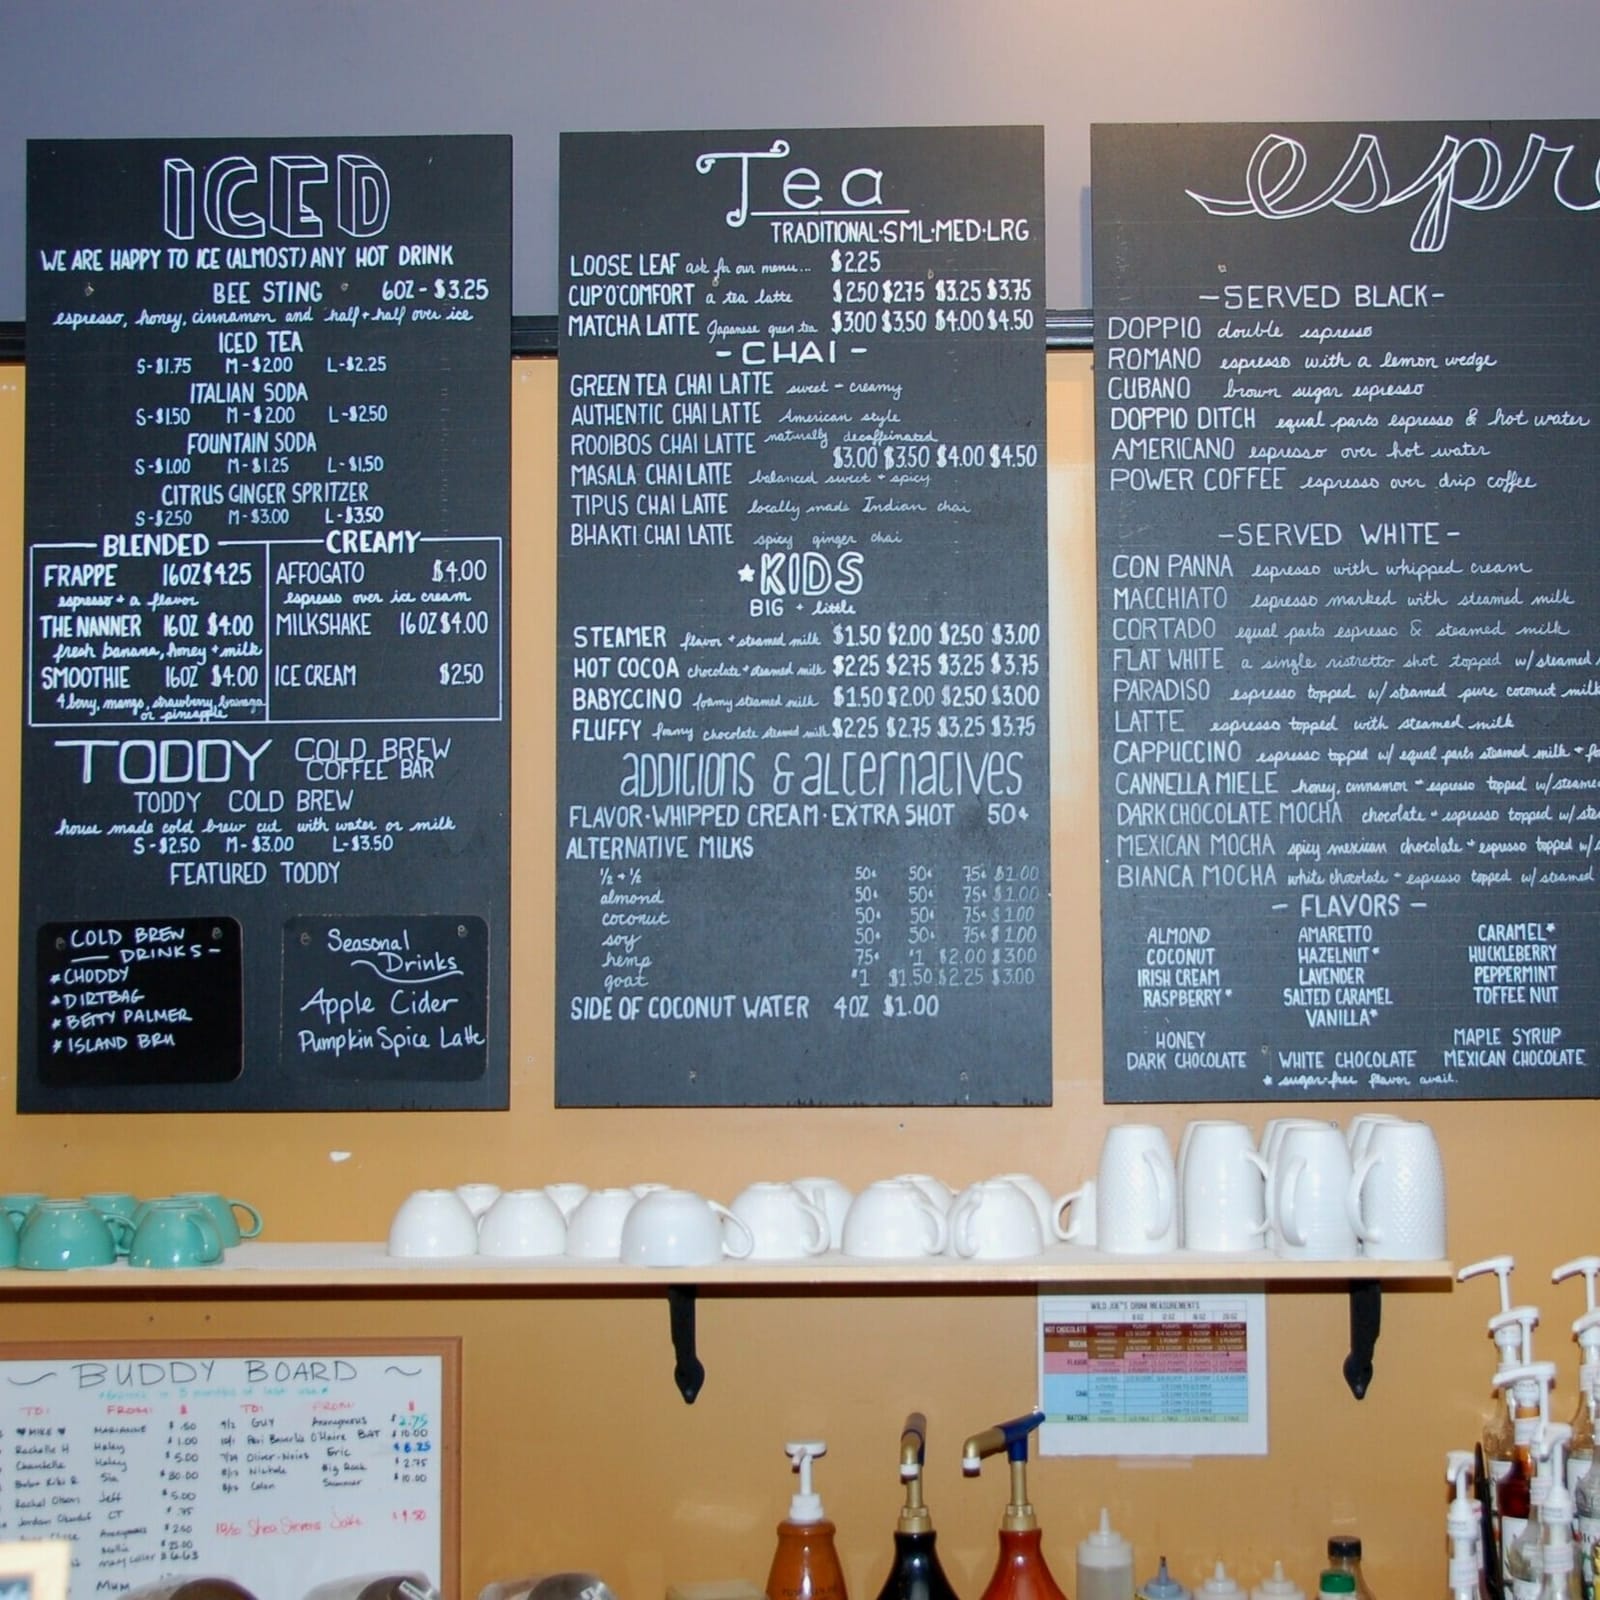 ICED
WE ARE HAPPY TO ICE (ALMOST) ANY HOT DRINK
BEE STING 6OZ - $3.25
espresso, honey, cinnamon and half + half over ice
ICED TEA
S-$1.75 M-$2.00 L-$2.25
ITALIAN SODA
S-$1.50 M-$2.00 L-$2.50
FOUNTAIN SODA
S-$1.00 M-$1.25 L-$1.50
CITRUS GINGER SPRITZER
S-$2.50 M-$3.00 L-$3.50
BLENDED
FRAPPE 16OZ $4.25
espresso + a flavor
THE NANNER 16OZ $4.00
fresh banana, honey + milk
SMOOTHIE 16OZ $4.00
4 berry, mango, strawberry, banana
or pineapple
CREAMY
AFFOGATO $4.00
espresso over ice cream
MILKSHAKE 16OZ $4.00
ICE CREAM $2.50
TODDY COLD BREW
COFFEE BAR
TODDY COLD BREW
house made cold brew cut with water or milk
S-$2.50 M-$3.00 L-$3.50
FEATURED TODDY
COLD BREW
DRINKS -
* CHODDY
* DIRTBAG
* BETTY PALMER
* ISLAND BRU
Seasonal
Drinks
Apple Cider
Pumpkin Spice Latte
Tea
TRADITIONAL·SML·MED·LRG
LOOSE LEAF ask for our menu... $2.25
CUP'O'COMFORT a tea latte $2.50 $2.75 $3.25 $3.75
MATCHA LATTE Japanese green tea $3.00 $3.50 $4.00 $4.50
- CHAI -
GREEN TEA CHAI LATTE sweet - creamy
AUTHENTIC CHAI LATTE American style
ROOIBOS CHAI LATTE naturally decaffeinated
$3.00 $3.50 $4.00 $4.50
MASALA CHAI LATTE balanced sweet + spicy
TIPUS CHAI LATTE locally made Indian chai
BHAKTI CHAI LATTE spicy ginger chai
*KIDS
BIG + little
STEAMER flavor + steamed milk $1.50 $2.00 $2.50 $3.00
HOT COCOA chocolate + steamed milk $2.25 $2.75 $3.25 $3.75
BABYCCINO foamy steamed milk $1.50 $2.00 $2.50 $3.00
FLUFFY foamy chocolate steamed milk $2.25 $2.75 $3.25 $3.75
ADDITIONS & ALTERNATIVES
FLAVOR·WHIPPED CREAM·EXTRA SHOT 50¢
ALTERNATIVE MILKS
½ + ½ 50¢ 50¢ 75¢ $1.00
almond 50¢ 50¢ 75¢ $1.00
coconut 50¢ 50¢ 75¢ $1.00
soy 50¢ 50¢ 75¢ $1.00
hemp 75¢ $1 $2.00 $3.00
goat $1 $1.50 $2.25 $3.00
SIDE OF COCONUT WATER 4OZ $1.00
espr
- SERVED BLACK -
DOPPIO double espresso
ROMANO espresso with a lemon wedge
CUBANO brown sugar espresso
DOPPIO DITCH equal parts espresso & hot water
AMERICANO espresso over hot water
POWER COFFEE espresso over drip coffee
- SERVED WHITE -
CON PANNA espresso with whipped cream
MACCHIATO espresso marked with steamed milk
CORTADO equal parts espresso & steamed milk
FLAT WHITE a single ristretto shot topped w/steamed
PARADISO espresso topped w/steamed pure coconut milk
LATTE espresso topped with steamed milk
CAPPUCCINO espresso topped w/ equal parts steamed milk + fo
CANNELLA MIELE honey, cinnamon + espresso topped w/steame
DARK CHOCOLATE MOCHA chocolate + espresso topped w/ste
MEXICAN MOCHA spicy mexican chocolate + espresso topped w/s
BIANCA MOCHA white chocolate + espresso topped w/ steamed
- FLAVORS -
ALMOND AMARETTO CARAMEL*
COCONUT HAZELNUT* HUCKLEBERRY
IRISH CREAM LAVENDER PEPPERMINT
RASPBERRY* SALTED CARAMEL TOFFEE NUT
VANILLA*
HONEY MAPLE SYRUP
DARK CHOCOLATE WHITE CHOCOLATE MEXICAN CHOCOLATE
* sugar-free flavor avail.
WILD JOE'S DRINK MEASUREMENTS
8 OZ 12 OZ 16 OZ 20 OZ
HOT CHOCOLATE
MOCHA
FLAVOR
CHAI
MATCHA
~ BUDDY BOARD ~
TO: FROM: $ TO: FROM: $
♥ MIKE ♥ MARIANNE $ .50
Rachelle H Haley $ 1.00
Chantelle Haley $ 5.00
Sia $ 30.00
Rachel Olson Jeff $ 5.00
Jordan CT $ .75
Anonymous $ 2.50
$ 25.00
$ 6.63
Mum
9/2 GUY Anonymous $ 2.75
O'Haire BAT $ 10.00
Oliver-Noias Eric $ 6.25
Nichole Big Rack $ 2.75
Colan Summer $ 10.00
10/20 Shea Stevens Jake $ 9.50